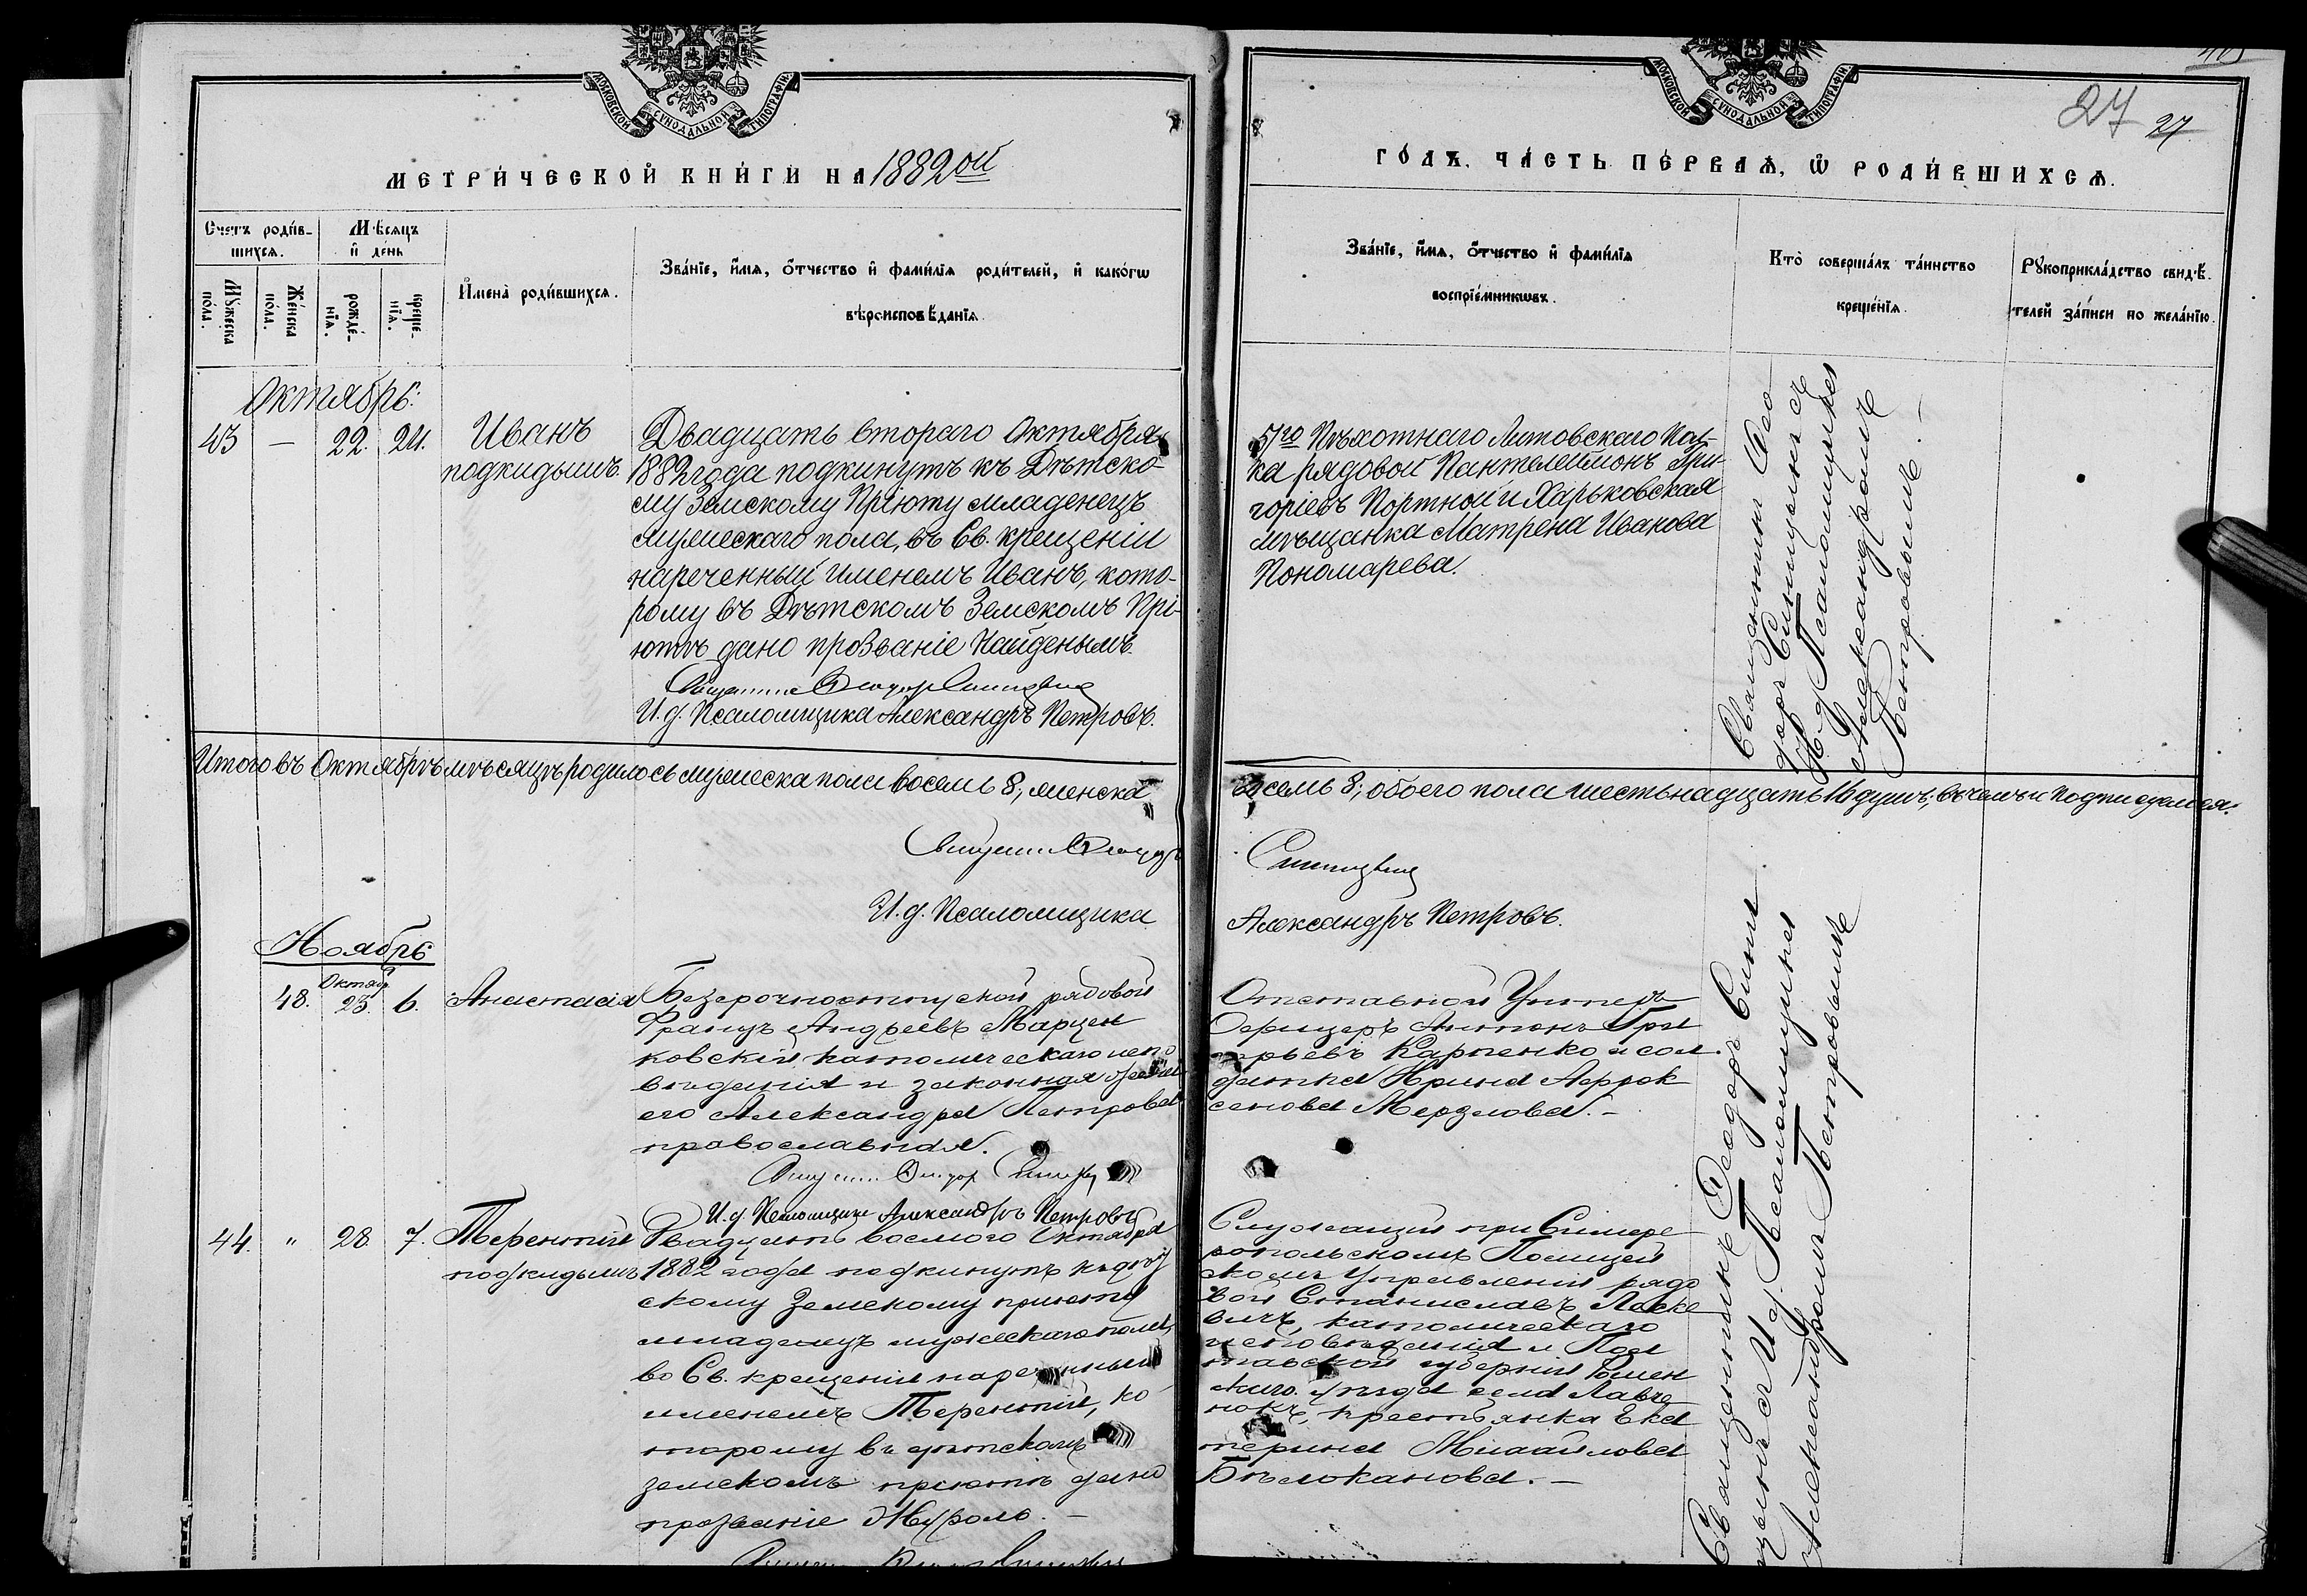 МОСКОВСКОЙ СѴНОДАЛЬНОЙ ТИПОГРАФІИ.
МЕТРИ́ЧЕСКОЙ КНИ́ГИ НА 1882ой
Счетъ роди́в-
шихся.
Мѣсяцъ
и҆ де́нь
Му́жеска
по́ла.
Же́нска
по́ла.
рожде́-
нїѧ.
креще́-
нїѧ.
И҆мена̀ роди́вшихсѧ.
Зва́нїе, и҆́мѧ, ѻ҆́тчество и҆ фами́лїѧ роди́телей, и҆ како́гѡ
вѣроисповѣ́данїѧ.
Октябрь:
43 — 22. 24.
Иванъ
подкидышъ.
Двадцать втораго Октября
1882 года подкинутъ къ Дѣтско-
му Земскому Пріюту младенецъ
мужескаго пола, въ Св. крещеніи
нареченный именемъ Иванъ, кото-
рому въ Дѣтскомъ Земскомъ Прі-
ютѣ дано прозваніе Найденымъ.
И. д. Псаломщика Александръ Петровъ.
Итого въ Октябрѣ мѣсяцѣ родилось мужеска пола восемь 8, женска
И. д. Псаломщика
Ноябрь
48. Октяб. 23. 6.
Анастасія
Безсрочноотпускной рядовой
Францъ Андреевъ Марцен
ковскій католическаго испо
вѣданія и законная жена
его Александра Петрова
православная.
И. д. Псаломщика Александръ Петровъ
44. " 28 7.
Терентій
подкидышъ
Двадцать восмого Октября
1882 года подкинутъ къ дѣт
скому Земскому пріюту
младенецъ мужескаго пола,
во Св. крещеніи нареченный
именемъ Терентій, ко
торому въ дѣтскомъ
земскомъ пріютѣ дано
прозваніе
МОСКОВСКОЙ СѴНОДАЛЬНОЙ ТИПОГРАФІИ.
27 27
ГО́ДЪ. ЧА́СТЬ ПЕ́РВАѦ, Ѽ РОДИ́ВШИХСѦ.
Зва́нїе, и҆́мѧ, ѻ҆́тчество и҆ фами́лїѧ
воспрїе́мникѡвъ.
Кто̀ соверша́лъ та́инство
креще́нїѧ.
Рꙋкоприкла́дство свидѣ́-
телей за́писи по жела́нїю.
51го Пѣхотнаго Литовскаго Пол-
ка рядовой Пантелеймонъ Гри-
горіевъ Портной и Харьковская
мѣщанка Матрена Иванова
Пономарева.
Священникъ Ѳео
доръ Синицынъ съ
И. д. Псаломщика
Александромъ
Петровымъ. —
восемь 8; обоего пола шестьнадцать 16 душъ; въ чемъ и подписуемся.
Александръ Петровъ.
Отставной Унтеръ
Офицеръ Антонъ Гри
горьевъ Карпенко и сол.
датка Ирина
Мерзлова. —
Священникъ Ѳеодоръ Сини
цынъ съ И. д. Псаломщика
Александромъ Петровымъ
Служащій при Симфе
ропольскомъ Полицей
скомъ Управленіи рядо
вой Станиславъ Ласке
вичъ, католическаго
исповѣданія и Пол
тавской губерніи Ромен
скаго уѣзда села
крестьянка Ека
терина Михайлова
Бѣлоканова. —